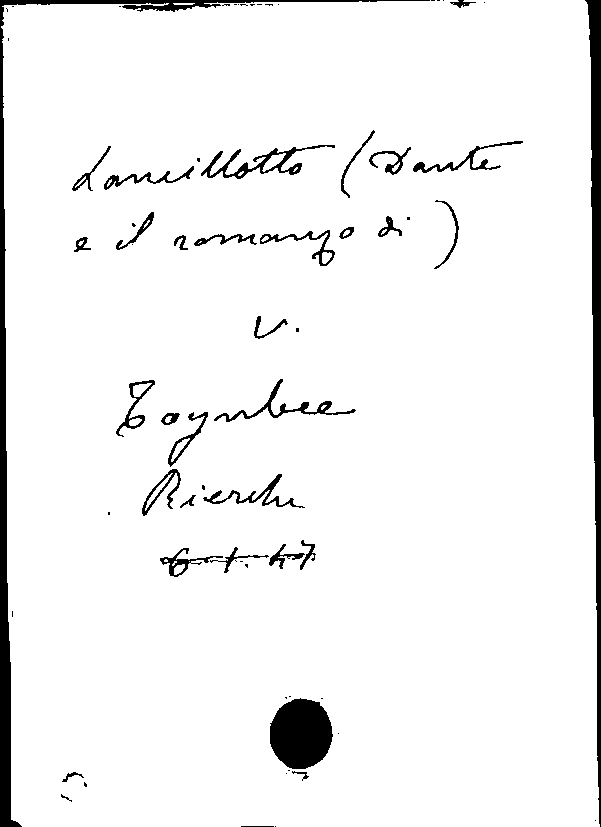 Lancillotto (Dante
e il romanzo di)
v.
Toynbee
Ricerche
6.1.47